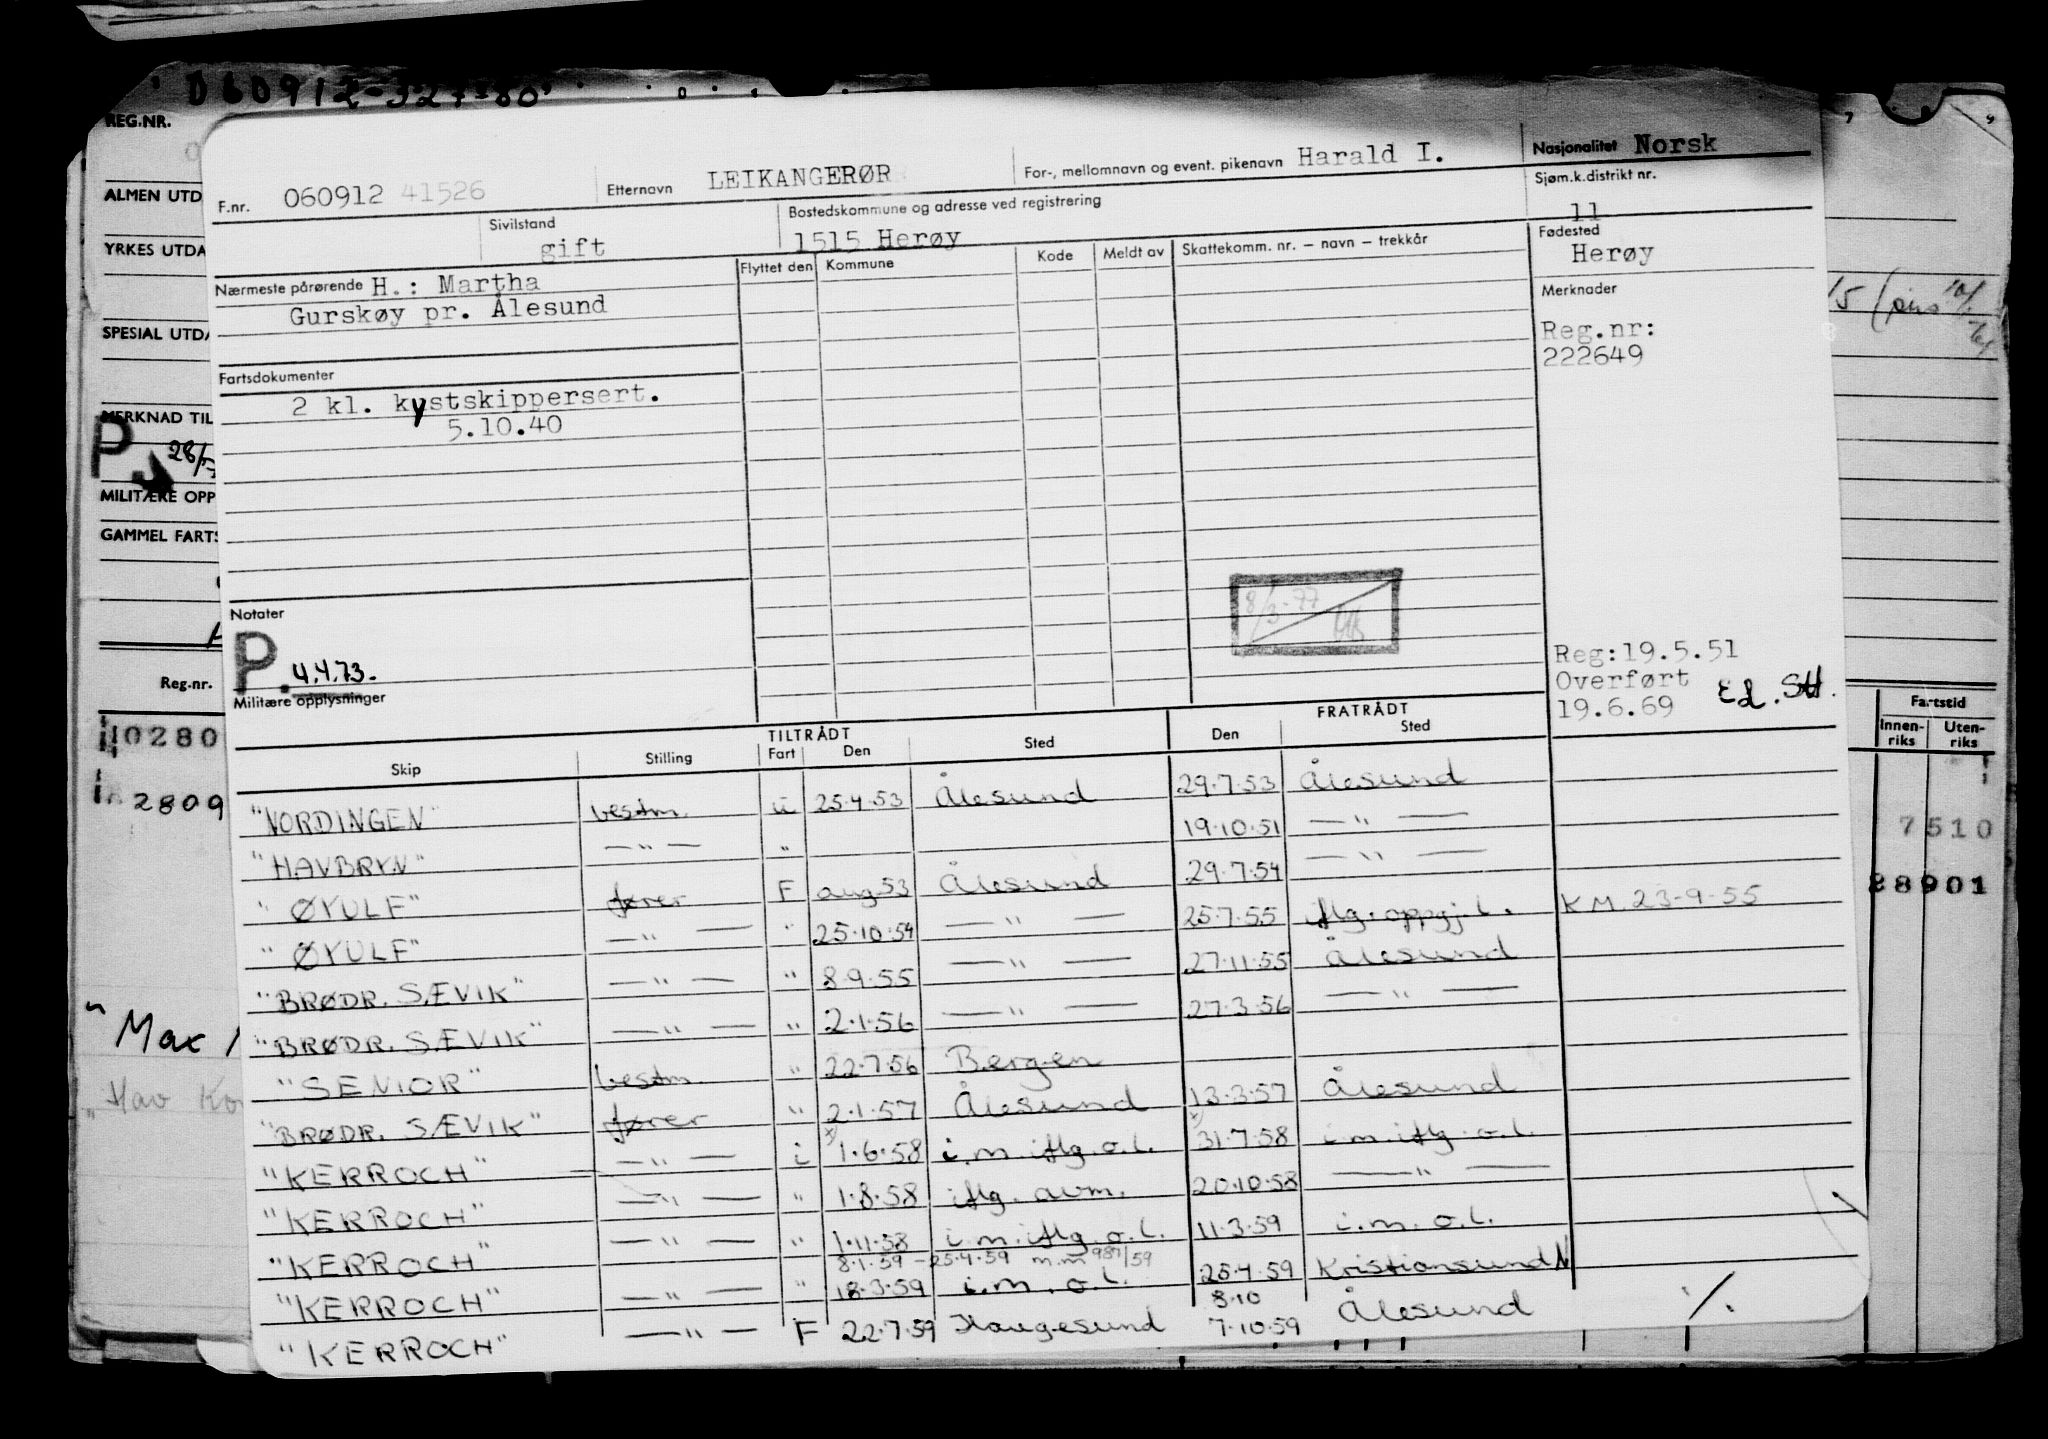 060912-327-80
REG.NR.
ALMEN UTD
YRKES UTDA
SPESIAL UTDA
MERKNAD TIL
P. 28/
MILITÆRE OPP
GAMMEL FARTS
Reg-nr.
10280
2809
"Max
"Hav Ko
F.nr. 060912 41526 Etternavn LEIKANGERØR For-, mellomnavn og event. pikenavn Harald I. Nasjonalitet Norsk
Sivilstand gift
Bostedskommune og adresse ved registrering
1515 Herøy
Sjøm.k.distrikt nr.
11
Nærmeste pårørende H.: Martha
Gurskøy pr. Ålesund
Flyttet den Kommune Kode Meldt av Skattekomm. nr. – navn – trekkår
Fødested
Herøy
Merknader
Reg.nr:
222649
Fartsdokumenter
2 kl. kystskippersert.
5.10.40
8/3-77
Notater
P. 4.4.73.
Militære opplysninger
Reg:19.5.51
Overført
19.6.69
TILTRÅDT FRATRÅDT
Skip Stilling Fart Den Sted Den Sted
"NORDINGEN" bestm. u 25.4.53 Ålesund 29.7.53 Ålesund
"HAVBRYN" —"— " 19.10.51 —"—
"ØYULF" fører F aug.53 Ålesund 29.7.54 —"—
"ØYULF" —"— " 25.10.54 —"— 25.7.55 iflg. oppgj.l. K.M. 23-9-55
"BRØDR. SÆVIK" —"— " 8.9.55 —"— 27.11.55 Ålesund
"BRØDR. SÆVIK" —"— " 2.1.56 —"— 27.3.56 —"—
"SENIOR" bestm. " 22.7.56 Bergen
"BRØDR. SÆVIK" fører " 2.1.57 Ålesund 13.3.57 Ålesund
"KERROCH" —"— i x) 1.6.58 i.m. iflg. o.l. x) 31.7.58 i.m. iflg. o.l.
"KERROCH" —"— " 1.8.58 iflg. avm. 20.10.58 —"—
"KERROCH" —"— " 1.11.58 i.m. iflg. o.l. 11.3.59 i.m. o.l.
8.1.59 - 25.4.59 m.m 987/59
"KERROCH" —"— " 18.3.59 i.m. o.l. 25.4.59 Kristiansund N
8.10
"KERROCH" —"— F 22.7.59 Haugesund 7.10.59 Ålesund ./.
Fartstid
Innen-riks Uten-riks
7510
28901